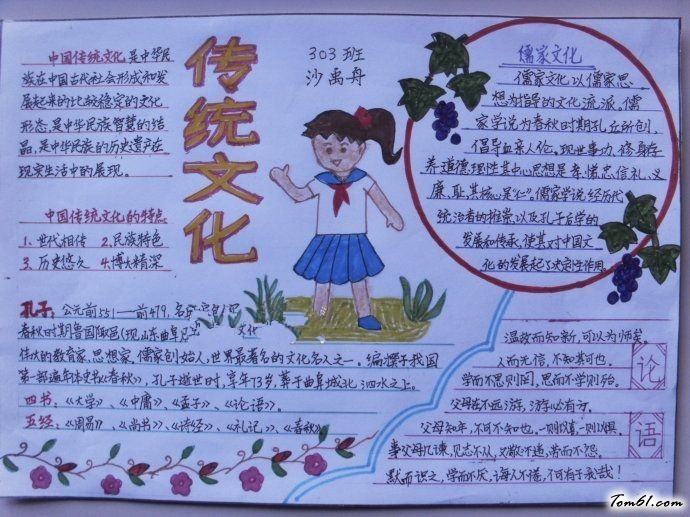 传统文化
303班
沙禹舟
中国传统文化是中华民
族在中国古代社会形成和发
展起来的比较稳定的文化
形态,是中华民族智慧的结
晶,是中华民族的历史遗产在
现实生活中的展现。
中国传统文化的特点
1、世代相传 2.民族特色
3、历史悠久 4.博大精深
孔子:公元前551——前479,名
春秋时期鲁国陬邑(现山东曲阜
文化
伟大的教育家、思想家、儒家创始人,世界最著名的文化名人之一。编撰了我国
第一部编年本史书《春秋》,孔子逝世时,享年73岁,葬于曲阜城北泗水之上。
四书:《大学》、《中庸》、《孟子》、《论语》。
五经:《周易》、《尚书》、《诗经》、《礼记》、《春秋》
儒家文化
儒家文化以儒家思
想为指导的文化流派。儒
家学说为春秋时期孔丘所创,
倡导血亲人伦、现世事功、修身存
养、道德理性,其中心思想是孝、悌、忠、信、礼、义、
廉、耻,其核心是“仁”。儒家学说经历代
统治者的推崇,以及孔子后学的
发展和传承,使其对中国文
化的发展起了决定性作用。
论语
温故而知新,可以为师矣。
人而无信,不知其可也。
学而不思则罔,思而不学则殆。
父母在不远游,游必有方。
父母知年,不可不知也,一则以喜,一则以惧。
事父母几谏,见志不从,又敬不违,劳而不怨。
默而识之,学而不厌,诲人不倦,何有于我哉!
Tom61.com